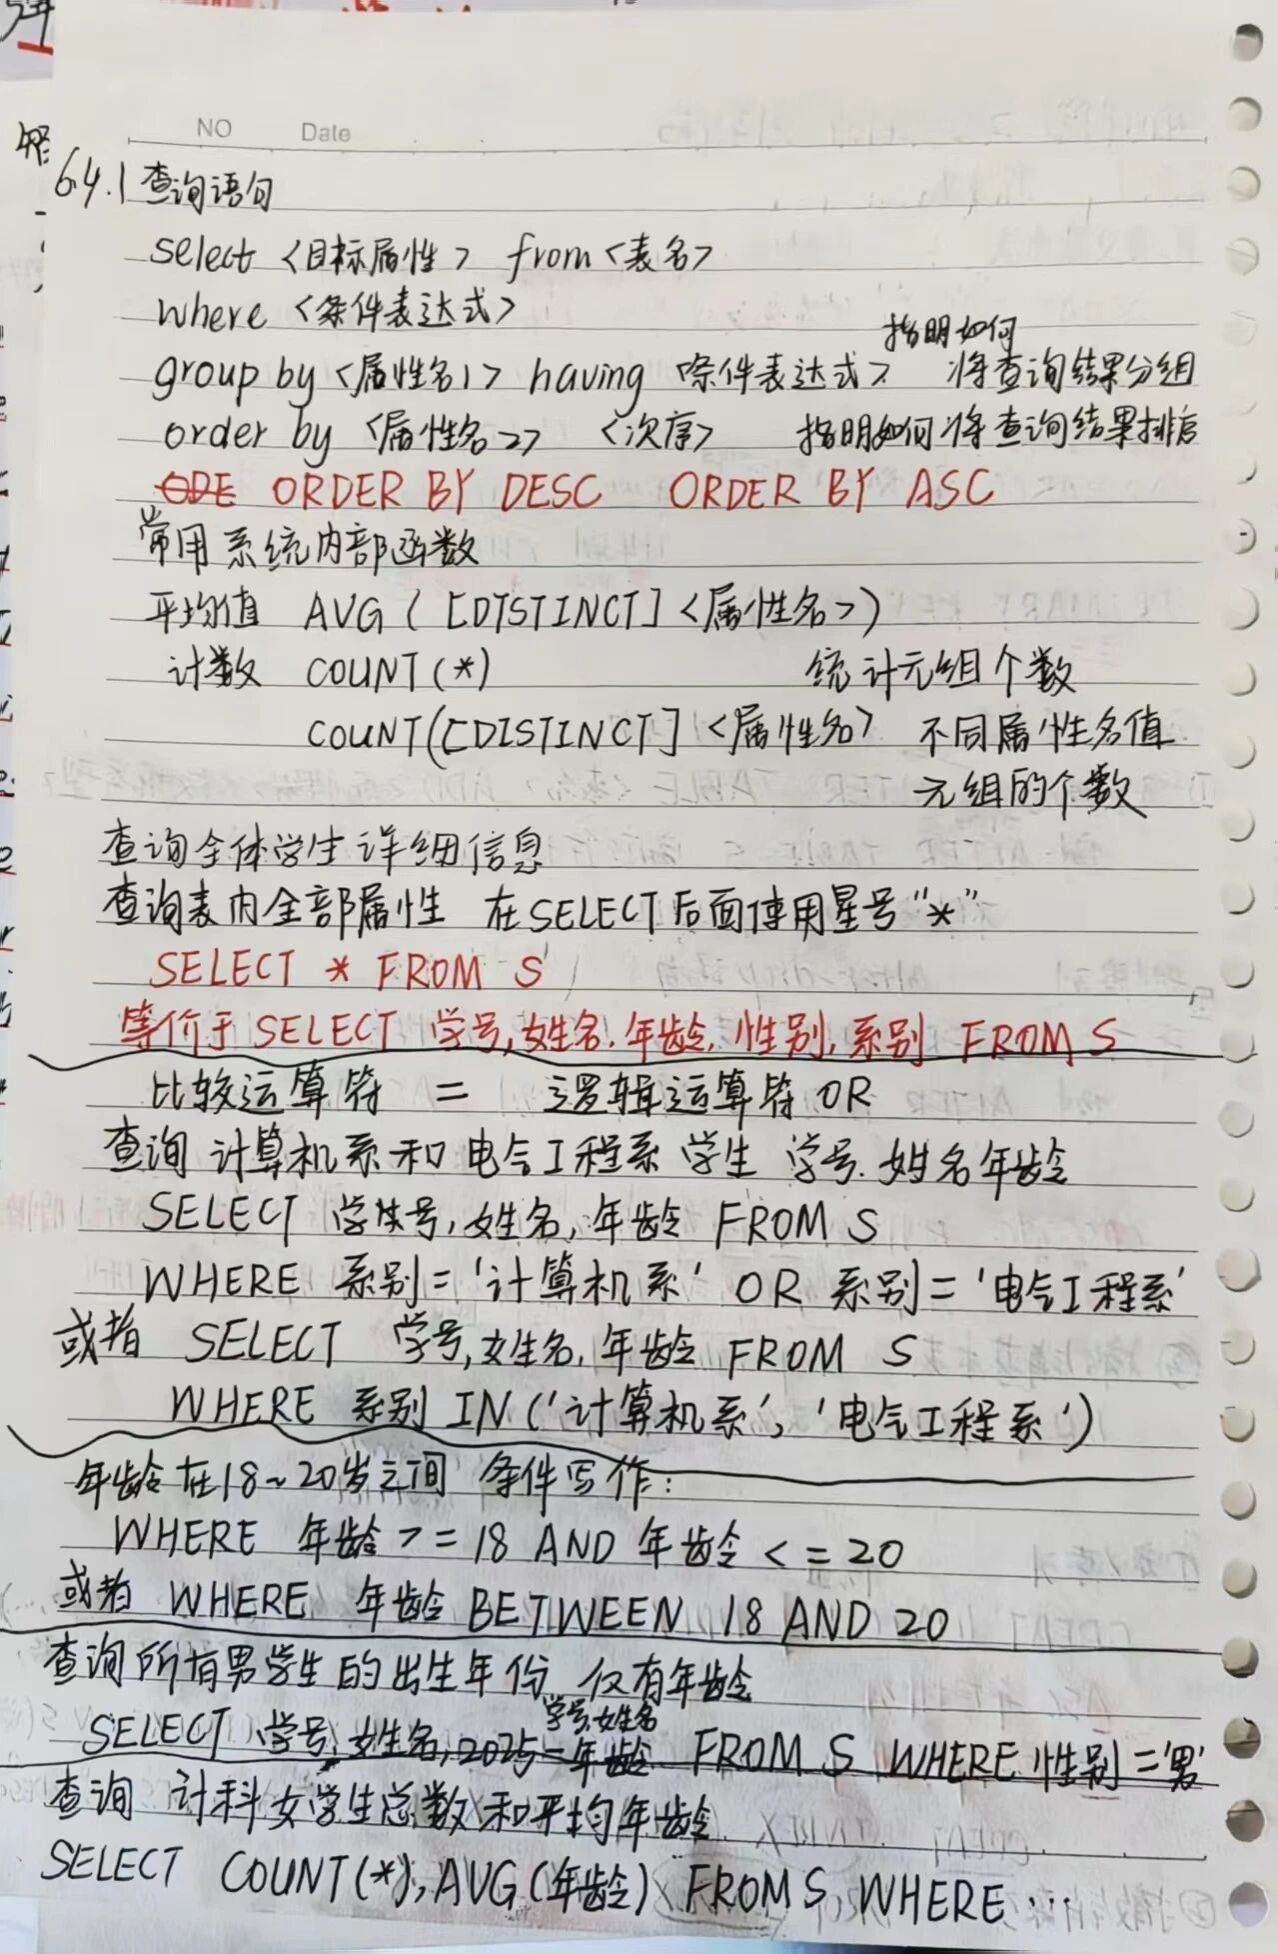 NO Date
6.4.1 查询语句
select <目标属性> from <表名>
where <条件表达式>
group by <属性名1> having <条件表达式> 指明如何将查询结果分组
order by <属性名2> <次序> 指明如何将查询结果排序
ODE ORDER BY DESC ORDER BY ASC
常用系统内部函数
平均值 AVG ( [DTSTINCT] <属性名>)
计数 COUNT (*) 统计元组个数
COUNT([DISTINCT] <属性名> 不同属性名值
元组的个数
查询全体学生详细信息
查询表内全部属性 在SELECT后面使用星号“*”
SELECT * FROM S
等价于 SELECT 学号,姓名,年龄,性别,系别 FROM S
比较运算符 = 逻辑运算符 OR
查询 计算机系和电气工程系学生 学号.姓名年龄
SELECT 学号,姓名,年龄 FROM S
WHERE 系别='计算机系' OR 系别='电气工程系'
或者 SELECT 学号,姓名,年龄 FROM S
WHERE 系别 IN ('计算机系','电气工程系')
年龄在18~20岁之间 条件写作:
WHERE 年龄 >= 18 AND 年龄 <= 20
或者 WHERE 年龄 BETWEEN 18 AND 20
查询所有男学生的出生年份 仅有年龄
学号,姓名
SELECT 学号,姓名,2025-年龄 FROM S WHERE 性别='男'
查询 计科女学生总数和平均年龄
SELECT COUNT(*),AVG(年龄) FROM S WHERE ...